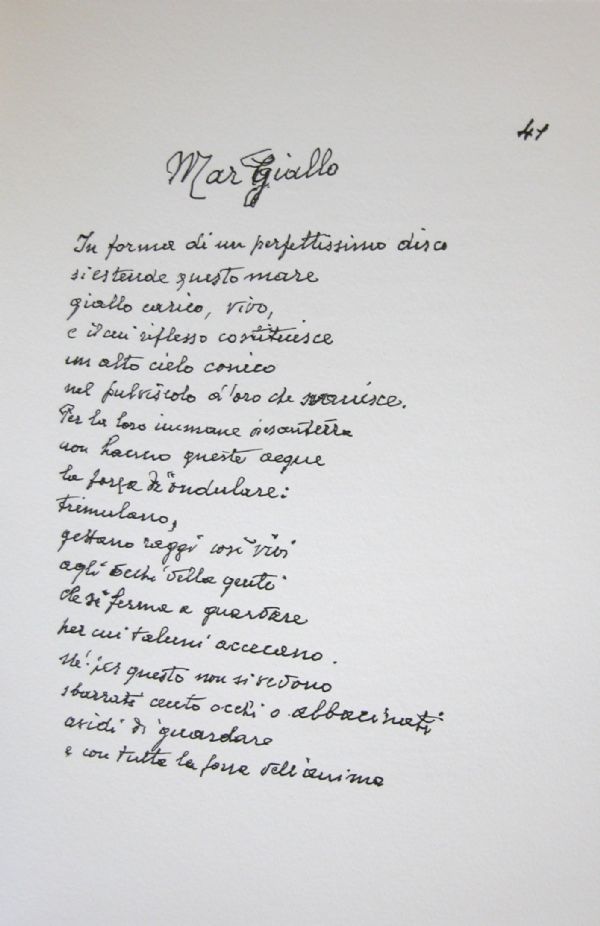 41
Mar Giallo
In forma di un perfettissimo disco
si estende questo mare
giallo carico, vivo,
e il cui riflesso costituisce
un alto cielo conico
nel pulviscolo d'oro che svanisce.
Per la loro immane pesantezza
non hanno queste acque
la forza di ondulare:
tremulano,
gettano raggi così vivi
agli occhi della gente
che si ferma a guardare
per cui taluni accecano.
Né per questo non si vedono
sbarrati cento occhi o abbacinati
avidi di guardare
e con tutta la forza dell'anima